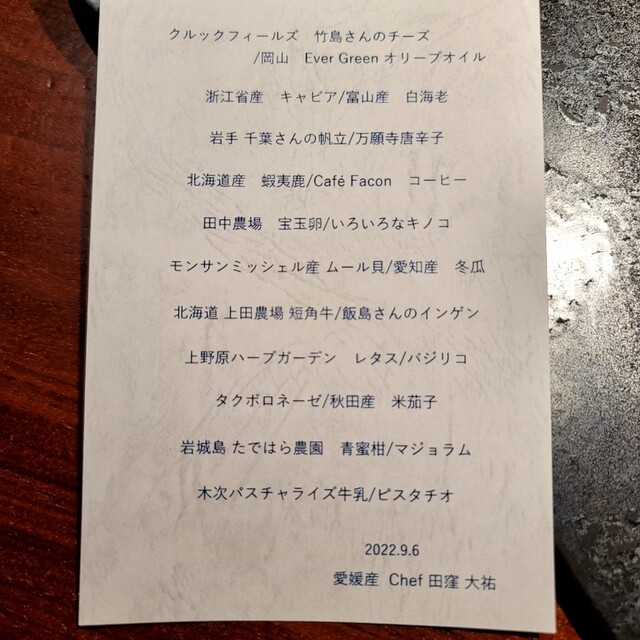 クルックフィールズ　竹島さんのチーズ
/岡山　Ever Green オリーブオイル
浙江省産　キャビア/富山産　白海老
岩手 千葉さんの帆立/万願寺唐辛子
北海道産　蝦夷鹿/Café Facon　コーヒー
田中農場　宝玉卵/いろいろなキノコ
モンサンミッシェル産 ムール貝/愛知産　冬瓜
北海道 上田農場 短角牛/飯島さんのインゲン
上野原ハーブガーデン　レタス/バジリコ
タクボロネーゼ/秋田産　米茄子
岩城島 たではら農園　青蜜柑/マジョラム
木次パスチャライズ牛乳/ピスタチオ
2022.9.6
愛媛産 Chef 田窪 大祐